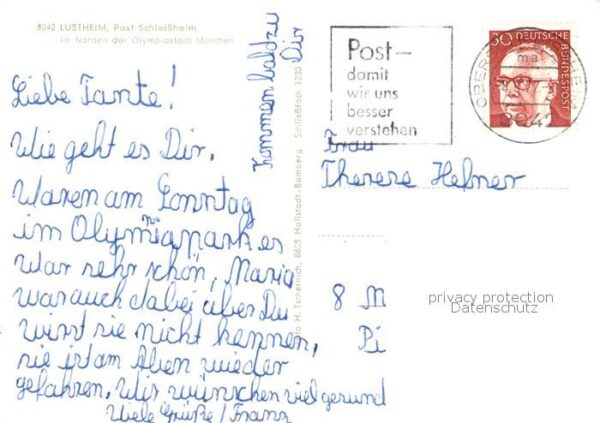 8042 LUSTHEIM, Post Schleißheim
im Norden der Olympiastadt München
Liebe Tante!
Wie geht es Dir.
Waren am Sonntag
im Olympiapark es
war sehr schön, Maria
war auch dabei über Du
wirst sie nicht kennen,
sie ist am Aben wieder
gefahren. Wir wünschen viel gesund
Viele Grüße / Franz
Kommen bald zu
Dir
Foto H. Tschernich, 8605 Hallstadt-Bamberg Schließfach 1230
Post-
damit
wir uns
besser
verstehen
30 DEUTSCHE
BUNDESPOST
8042
Frau
Therese Hefner
8 M
Pi
privacy protection
Datenschutz